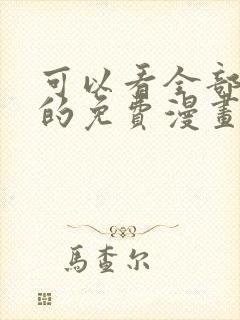 可以看全部
的免費漫畫
馬查尔